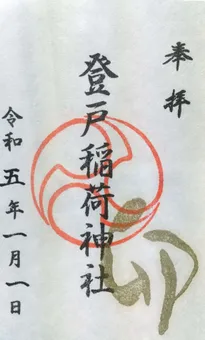 奉拝
登戸稲荷神社
令和五年一月一日
卯